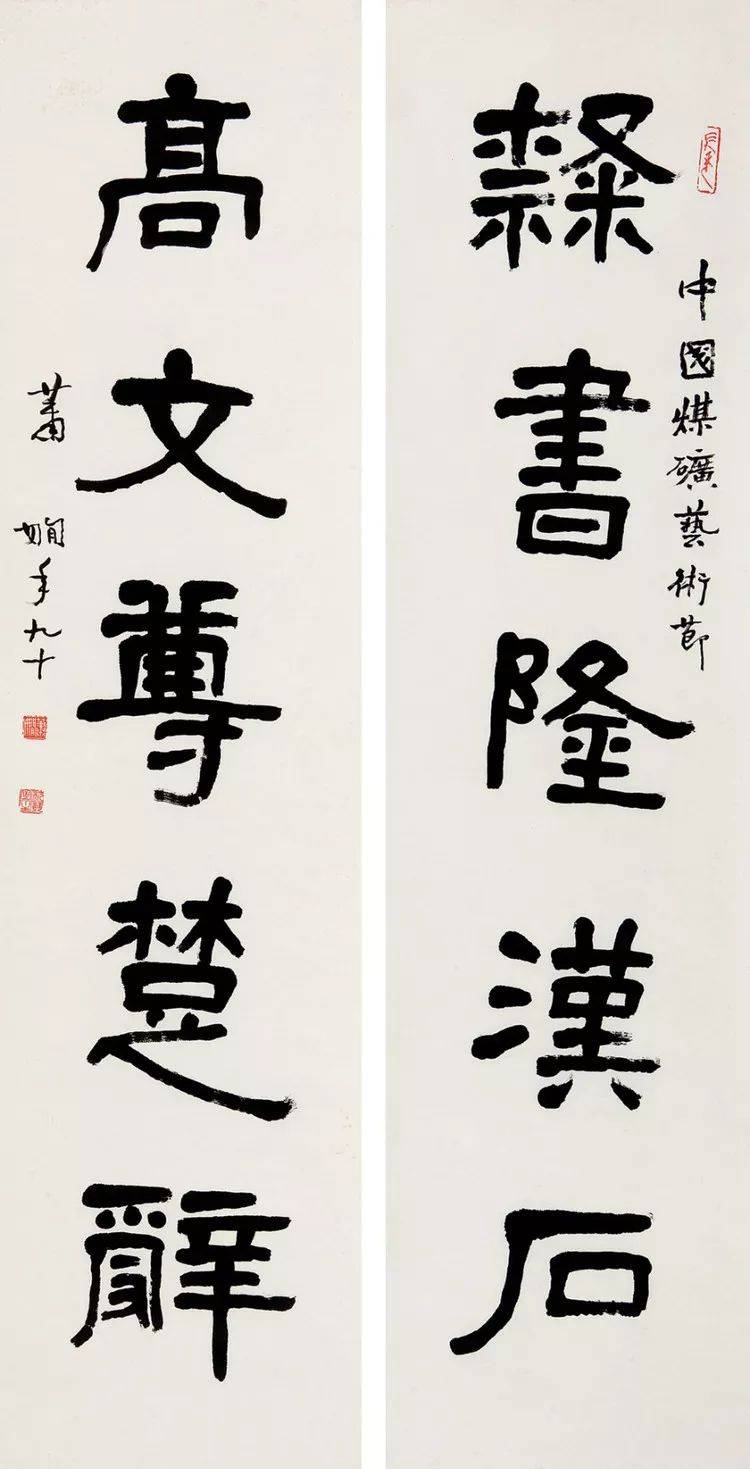 中國煤礦藝術節
隸書隆漢石
高文尊楚辭
蕭嫻年九十